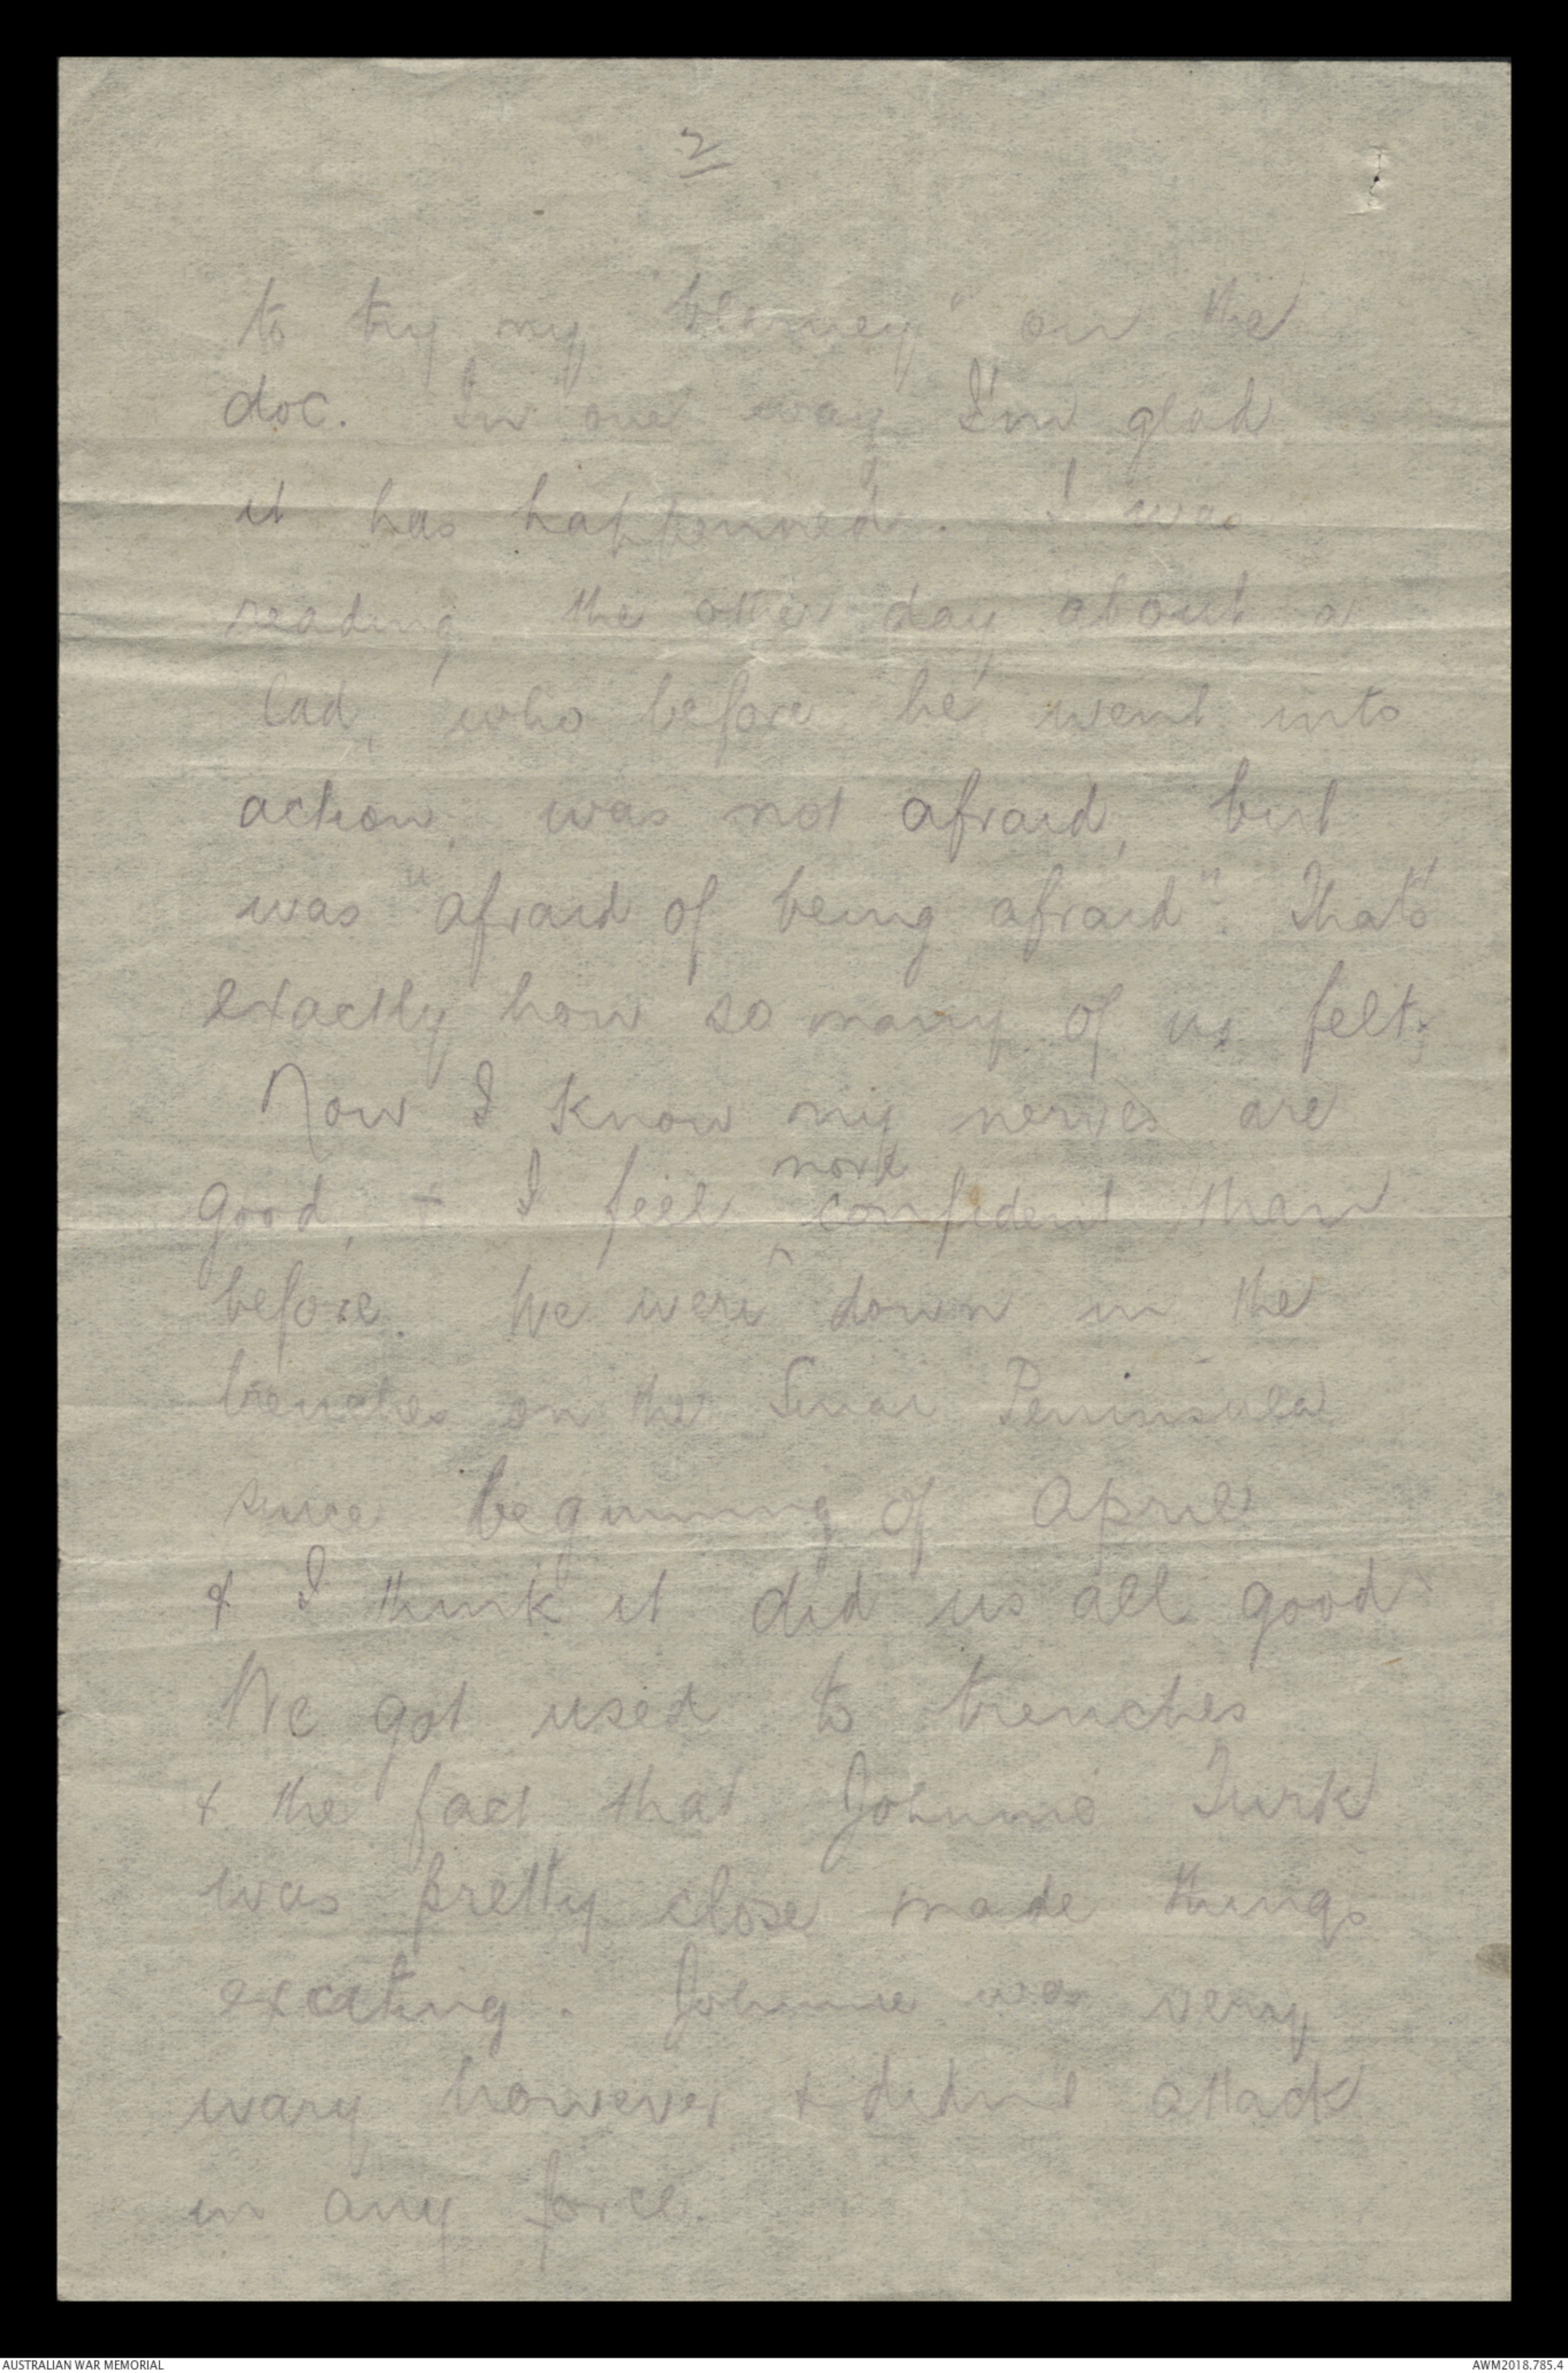 2
to try my "blarney" on the
doc. In one way I'm glad
it has happenned. I was
reading the other day about a
lad, who before he went into
action, was not afraid, but
was "afraid of being afraid". That's
exactly how so many of us felt.
Now I know my nerves are
good, + I feel more confident than
before. We were down in the
trenches on the Sinai Peninsula
since beginning of April
& I think it did us all good
We got used to trenches
& the fact that Johnnie Turk
was pretty close made things
exciting. Johnnie was very
wary however & didn't attack
in any force.
AUSTRALIAN WAR MEMORIAL
AWM2018.785.4